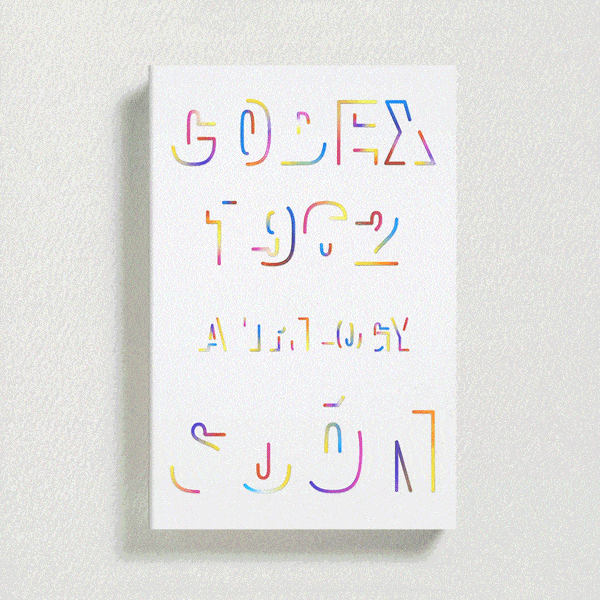 CODEX
1962
A TRILOGY
SJÓN